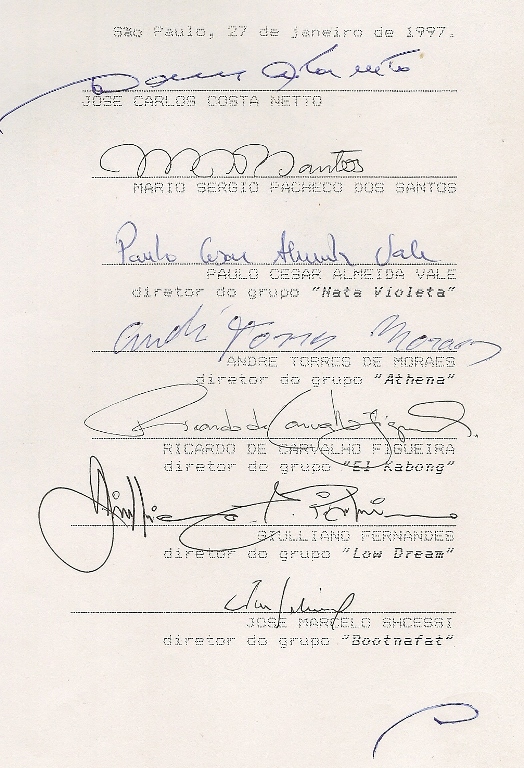 São Paulo, 27 de janeiro de 1997.
JOSE CARLOS COSTA NETTO
MARIO SERGIO PACHECO DOS SANTOS
Paulo Cesar Almeida Vale
PAULO CESAR ALMEIDA VALE
diretor do grupo "Mata Violeta"
André Torres Moraes
ANDRE TORRES DE MORAES
diretor do grupo "Athena"
Ricardo de Carvalho Figueira
RICARDO DE CARVALHO FIGUEIRA
diretor do grupo "El Kabong"
GIULLIANO FERNANDES
diretor do grupo "Low Dream"
JOSE MARCELO SHCESSI
diretor do grupo "Bootnafat"